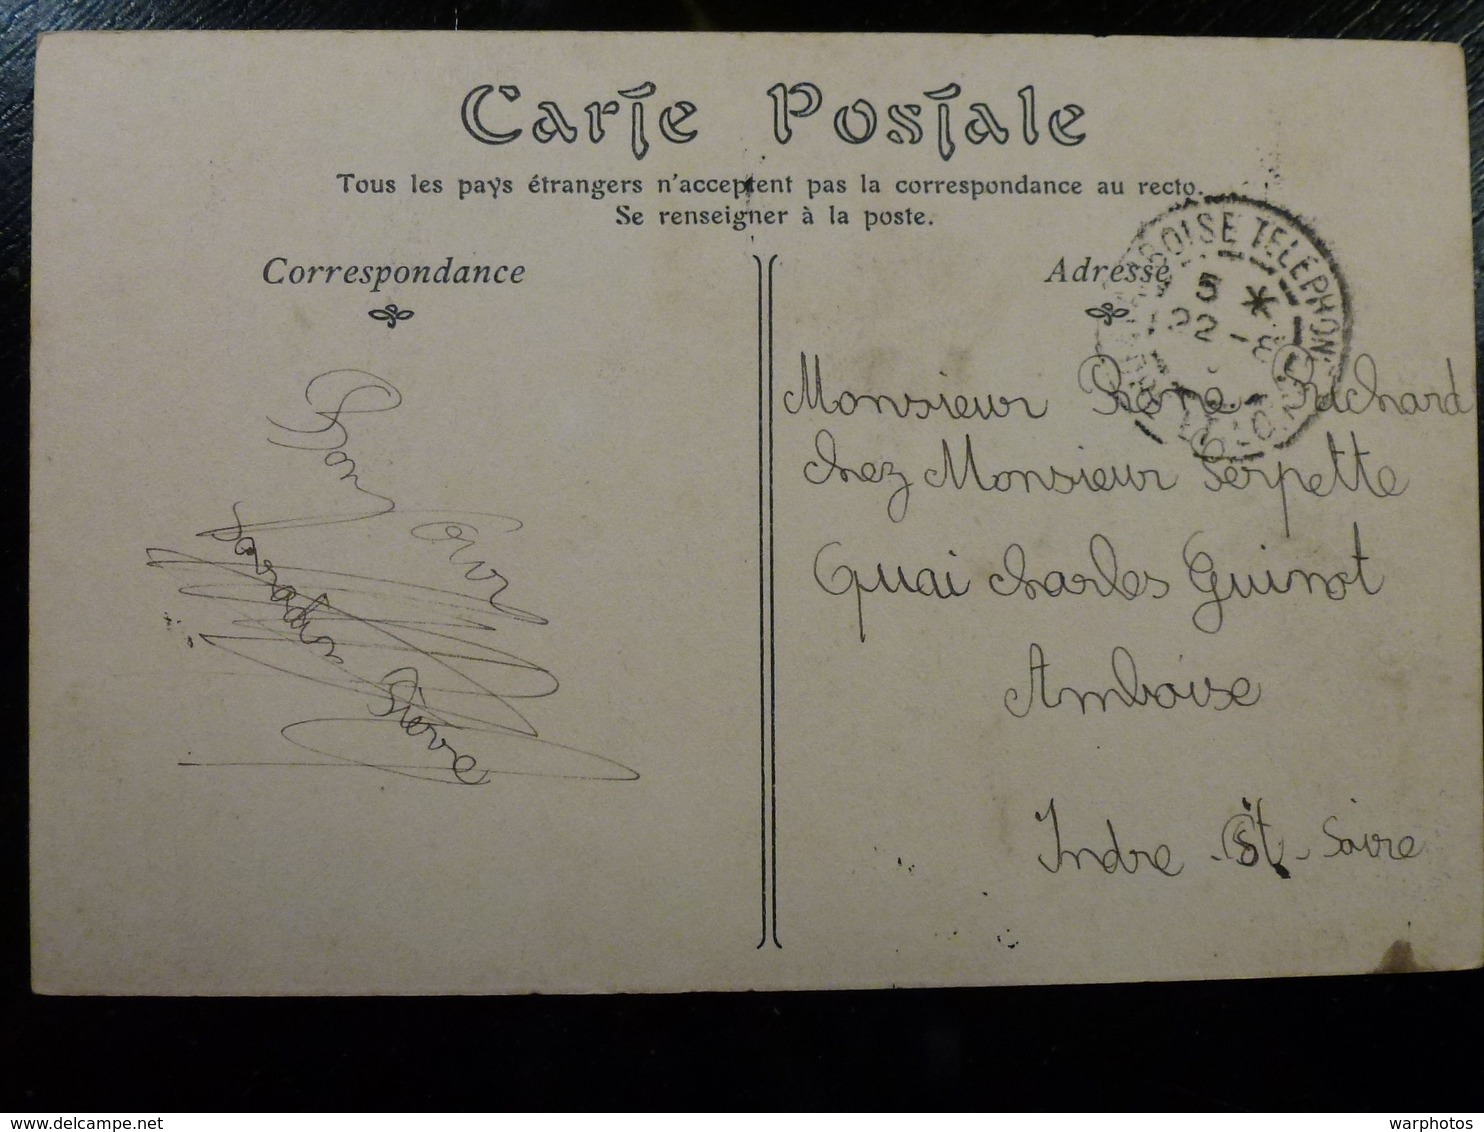 Carte Postale
Tous les pays étrangers n'acceptent pas la correspondance au recto.
Se renseigner à la poste.
Correspondance
Adresse
BOISE TELEPHON
5 *
22 - 8
Monsieur René Richard
chez Monsieur Serpette
Quai Charles Guinot
Amboise
Indre et Loire
Pierre
www.delcampe.net
warphotos